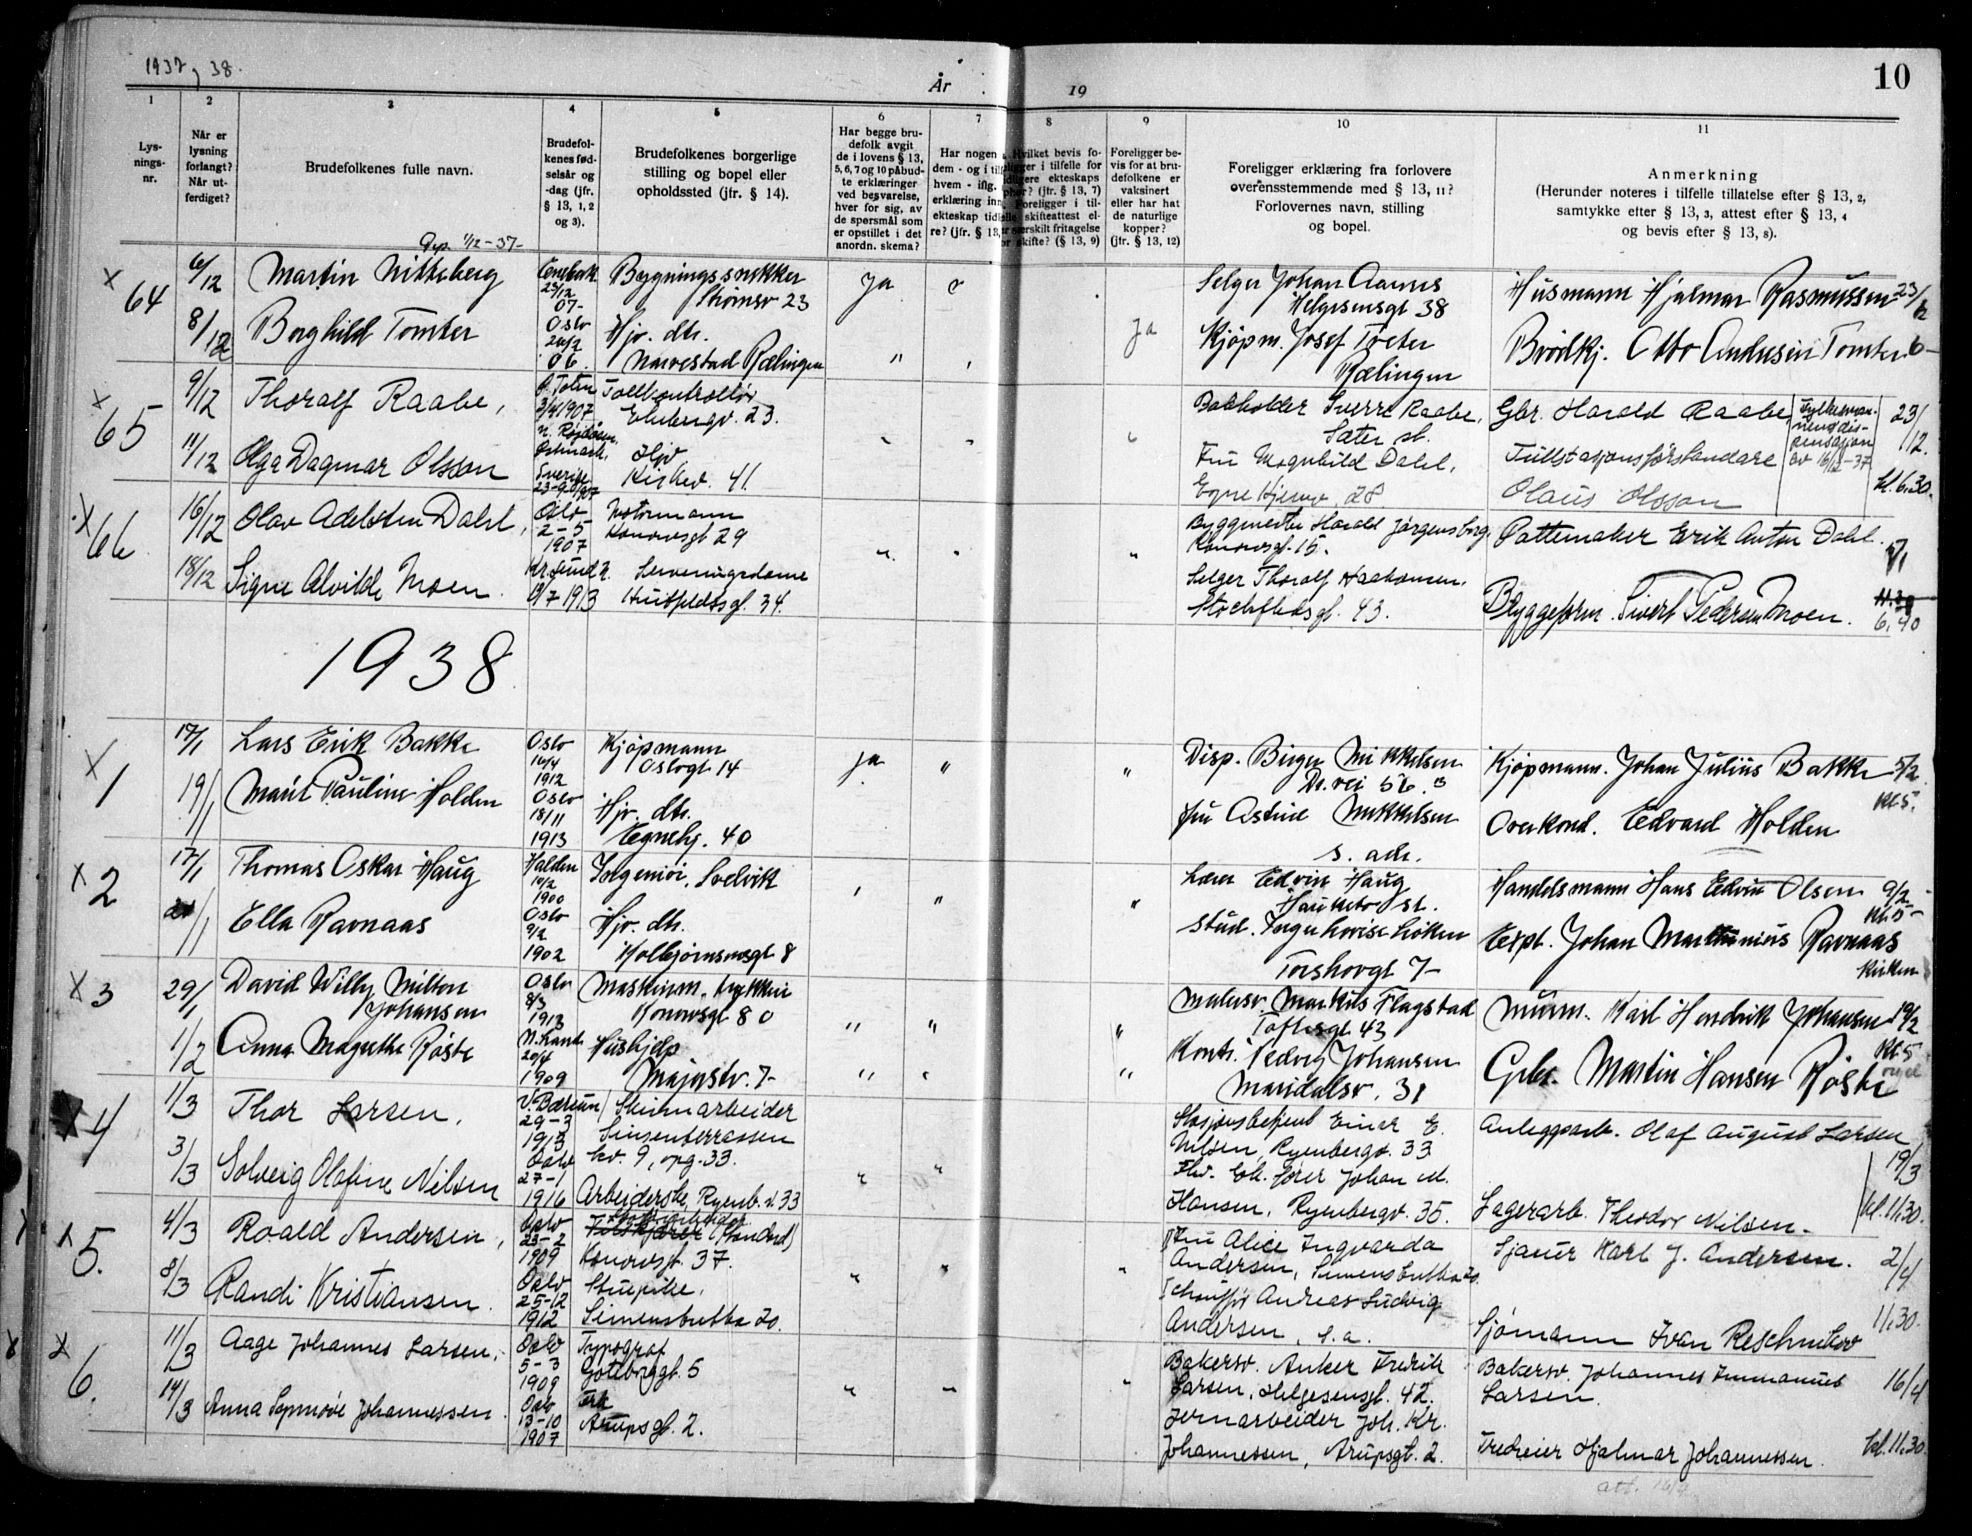 1937 og 38.
År
19
10
1
2
3
4
5
6
7
8
9
10
11
Lys-
nings-
nr.
Når er
lysning
forlangt?
Når ut-
ferdiget?
Brudefolkenes fulle navn.
Brudefol-
kenes fød-
selsår og
-dag (jfr.
§ 13, 1, 2
og 3).
Brudefolkenes borgerlige
stilling og bopel eller
opholdssted (jfr. § 14).
Har begge bru-
defolk avgit
de i lovens § 13,
5, 6, 7 og 10 påbud-
te erklæringer
ved besvarelse,
hver for sig, av
de spørsmål som
er opstillet i det
anordn. skema?
Har nogen
dem - og i
hvem - iflg.
erklæring inn
ekteskap tid
re? (jfr. § 13,
Hvilket bevis fo-
ligger i tilfelle for
ekteskaps
? (jfr. § 13, 7)
Foreligger i til-
skifteattest el-
særskilt fritagelse
skifte? (§ 13, 9)
Foreligger be-
vis for at bru-
defolkene er
vaksinert
eller har hat
de naturlige
kopper?
(jfr. § 13, 12)
Foreligger erklæring fra forlovere
overensstemmende med § 13, 11?
Forlovernes navn, stilling
og bopel.
Anmerkning
(Herunder noteres i tilfelle tillatelse efter § 13, 2,
samtykke efter § 13, 3, attest efter § 13, 4
og bevis efter § 13, 8).
1/12-37-
x 64
6/12
Martin Nitteberg
23/12
07-
Bygningssnekker
Strømsv 23
Ja
Selger Johan Aanes
Helgesensgt 38
Husmann Hjalmar Rasmussen
23/12
8/12
Borghild Tomter
Oslo
06.
Hjv. dtr.
Narvestad Rælingen
"
Ja
Kjøpm. Josef Toeter
Rælingen
Brødkj. Otto Andersen Tomter
6-
x 65
9/12
Thoralf Raabe,
Ø. Toten
3/4 1907
Tollkontrollør
Ekebergv. 23.
Bokholder Sverre Raabe,
Sæter st.
Gbr. Harald Raabe,
Fylkesman-
nens dis-
pensasjon
av 16/12-37
23/12.
11/12
Olga Dagmar Olsson
Östmark,
Sverige
23-9 1907
Hjv
Kirkev. 41.
Fru Magnhild Dahl,
Egne Hjemv. 28
Tullstasjonsförständare
Olaus Olsson
kl. 6.30.
x 66
16/12
Olav Adelsten Dahl,
Oslo
2-5
1907
Motormann
Konowsgt 29
"
"
Byggmester Harald Jørgensborg,
Konowsgt. 15.
Pottemaker Erik Anton Dahl.
18/12
Signe Alvilde Moen.
Kr.sund N.
6/7 1913
Serveringsdame
Huitfeldtsgt. 34.
Selger Thoralf Haakonsen,
Stockfletsgt. 43.
Bryggeform. Sivert Pedersen Moen.
11.30
6.40
1938
x 1
17/1
Lars Erik Bakke
Oslo
10/4
1912
Kjøpmann
Oslogt 14
ja
"
"
Disp. Birger Mikkelsen
Dr. vei 56. B
Kjøpmann. Johan Julius Bakke
5/2
Kl. 5.
19/1
Marit Pauline Holden
Oslo
18/11
1913
Hjv. dtr.
Egnehj. 40
Fru Astrid Mikkelsen
s. adr.
Overkond. Edvard Holden
x 2
17/1
Thomas Oskar Haug
Halden
10/2
1900
Ingeniør, Svelvik
"
"
Lærer Edvin Haug
Hauketo st.
Handelsmann Hans Edvin Olsen
9/2
Kl. 5-
21/1
Ella Ravnaas
Oslo
9/2
1902
Hjv. dtr.
Kolbjørnsensgt 8
Stud. Inger Lovise Løken
Torshovgt 7-
Expt. Johan Martinius Ravnaas
kirken
x 3
29/1
David Willy Milton
Johansen
Oslo
8/3
1913
Maskinm. trykkeri
Konowsgt 80
"
"
"
Malersv. Markus Flagstad
Toftesgt 43
Murm. Karl Hendrik Johansen
19/2
Kl. 5
orgel
1/2
Anna Magrethe Røste
N. Land
20/4
1909
Hushjelp
Majorstv. 7-
"
"
"
Kontr. Hedvig Johansen
Maridalsv. 31
Gbr. Martin Hansen Røste
x 4
1/3
Thor Larsen.
V. Bærum
29-3
1913
Steinarbeider
Sinsenterrassen
kv. 9, opg. 33.
"
"
Stasjonsbetjent Einar E.
Nilsen, Ryenbergv. 33
Anleggsarb. Olaf August Larsen
19/3
3/3
Solveig Olafine Nilsen
Oslo
27-1
1916
Arbeiderske, Ryenb.v. 33
Johan M.
Hansen, Ryenbergv. 35.
Lagerarb. Theodor Nilsen.
kl. 11.30.
x 5.
4/3
Roald Andersen,
Oslo
23-2
1909
Konowsgt. 37.
"
"
"
Fru Alice Ingvarda
Andersen, Simensbråten 20.
Sjauer Karl J. Andersen.
2/4
8/3
Randi Kristiansen.
Oslo
25-12
1912
Stuepike,
Simensbråten 20.
Schauffør Andreas Ludvig
Andersen, s.a.
Sjømann Ivan Reschnikov
11.30.
x 6.
11/3
Aage Johannes Larsen,
Oslo
5-3
1909
Typograf
Gøteborggt. 5
"
"
"
Bakersv. Anker Fredrik
Larsen, Helgesensgt. 42.
Bakersv. Johannes Immanuel
Larsen.
16/4
14/3
Anna Synnøve Johannessen.
Oslo
13-10
1907
Frk
Arupsgt. 2.
Jernarbeider Joh. Kr.
Johannessen, Arupsgt. 2.
Tredreier Hjalmar Johannessen.
kl. 11.30
att. 16/4